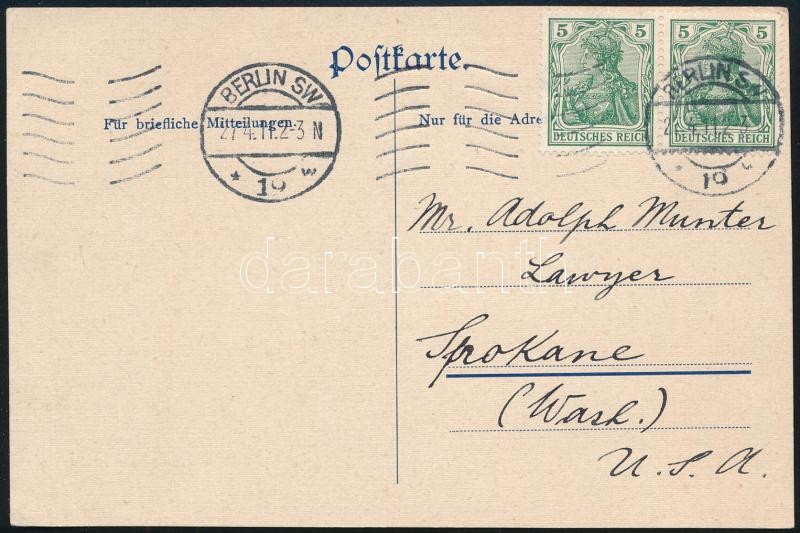 Postkarte.
Für briefliche Mitteilungen.
Nur für die Adre
5 5
DEUTSCHES REICH
5 5
DEUTSCHES REICH
BERLIN SW
27.4.11.2-3 N
* 19 w
BERLIN SW
19 w
Mr. Adolph Munter
Lawyer
Spokane
(Wash.)
U.S.A.
darabanth